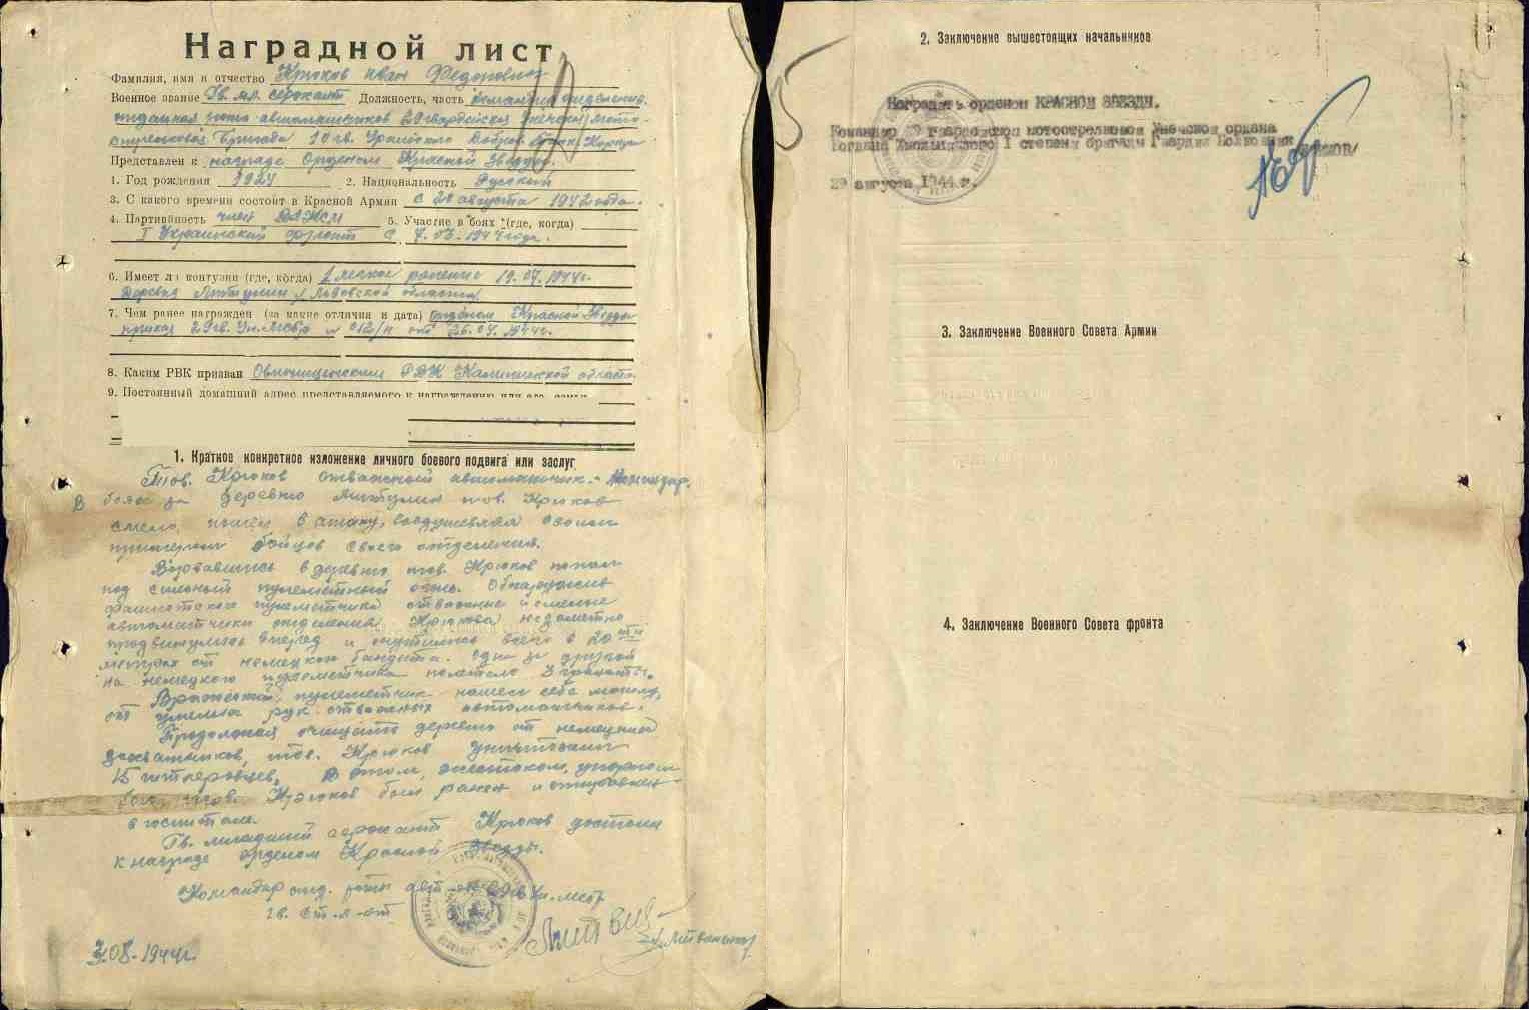 Наградной лист
Фамилия, имя и отчество Крюков Иван Федорович
Военное звание Гв. мл. сержант Должность, часть командир отделения
отдельная рота автоматчиков 29 гвардейская Унечская мото-
стрелковая Бригада 10 гв. Уральского Добров. Танк. Корпуса
Представлен к награде Орденом Красной Звезды.
1. Год рождения 1924 2. Национальность Русский
3. С какого времени состоит в Красной Армии с 20 августа 1942 года.
4. Партийность член ВЛКСМ 5. Участие в боях (где, когда)
I Украинский фронт с 7.03.1944 года.
6. Имеет ли контузии (где, когда) 1 легкое ранение 19.07.1944г.
Деревня Львовской области
7. Чем ранее награжден (за какие отличия и дата) орденом Красной Звезды
приказ 29 гв. Ун. МСБр № 012/н от 26.07.1944г.
8. Каким РВК призван РВК Калининской области
9. Постоянный домашний адрес представляемого к награждению или его семьи
1. Краткое конкретное изложение личного боевого подвига или заслуг
Тов. Крюков отважный автоматчик - командир.
В боях за деревню тов. Крюков
смело пошел в атаку, воодушевляя своим
примером бойцов своего отделения.
Ворвавшись в деревню тов. Крюков попал
под сильный пулеметный огонь. Обнаружив
фашистского пулеметчика отважные и смелые
автоматчики отделения Крюкова незаметно
продвинулись вперед и очутились всего в 20ти
метрах от немецкого бандита. Одна за другой
на немецкого пулеметчика полетело 3 гранаты.
Вражеский пулеметчик нашел себе могилу,
от умелых рук отважных автоматчиков.
Продолжая очищать деревню от немецких
захватчиков, тов. Крюков уничтожил
15 гитлеровцев. В этом, жестоком, упорном
бою тов. Крюков был ранен и отправлен
в госпиталь.
Гв. младший сержант Крюков достоин
к награде орденом Красной Звезды.
Командир отд. роты авт-ов 29 гв Ун. мсбр
гв. ст. л-нт
3.08.1944г.
2. Заключение вышестоящих начальников
Наградить орденом КРАСНОЙ ЗВЕЗДЫ.
Командир 29 гвардейской мотострелковой Унечской ордена
Богдана Хмельницкого I степени бригады Гвардии Полковник
29 августа 1944 г.
3. Заключение Военного Совета Армии
4. Заключение Военного Совета фронта